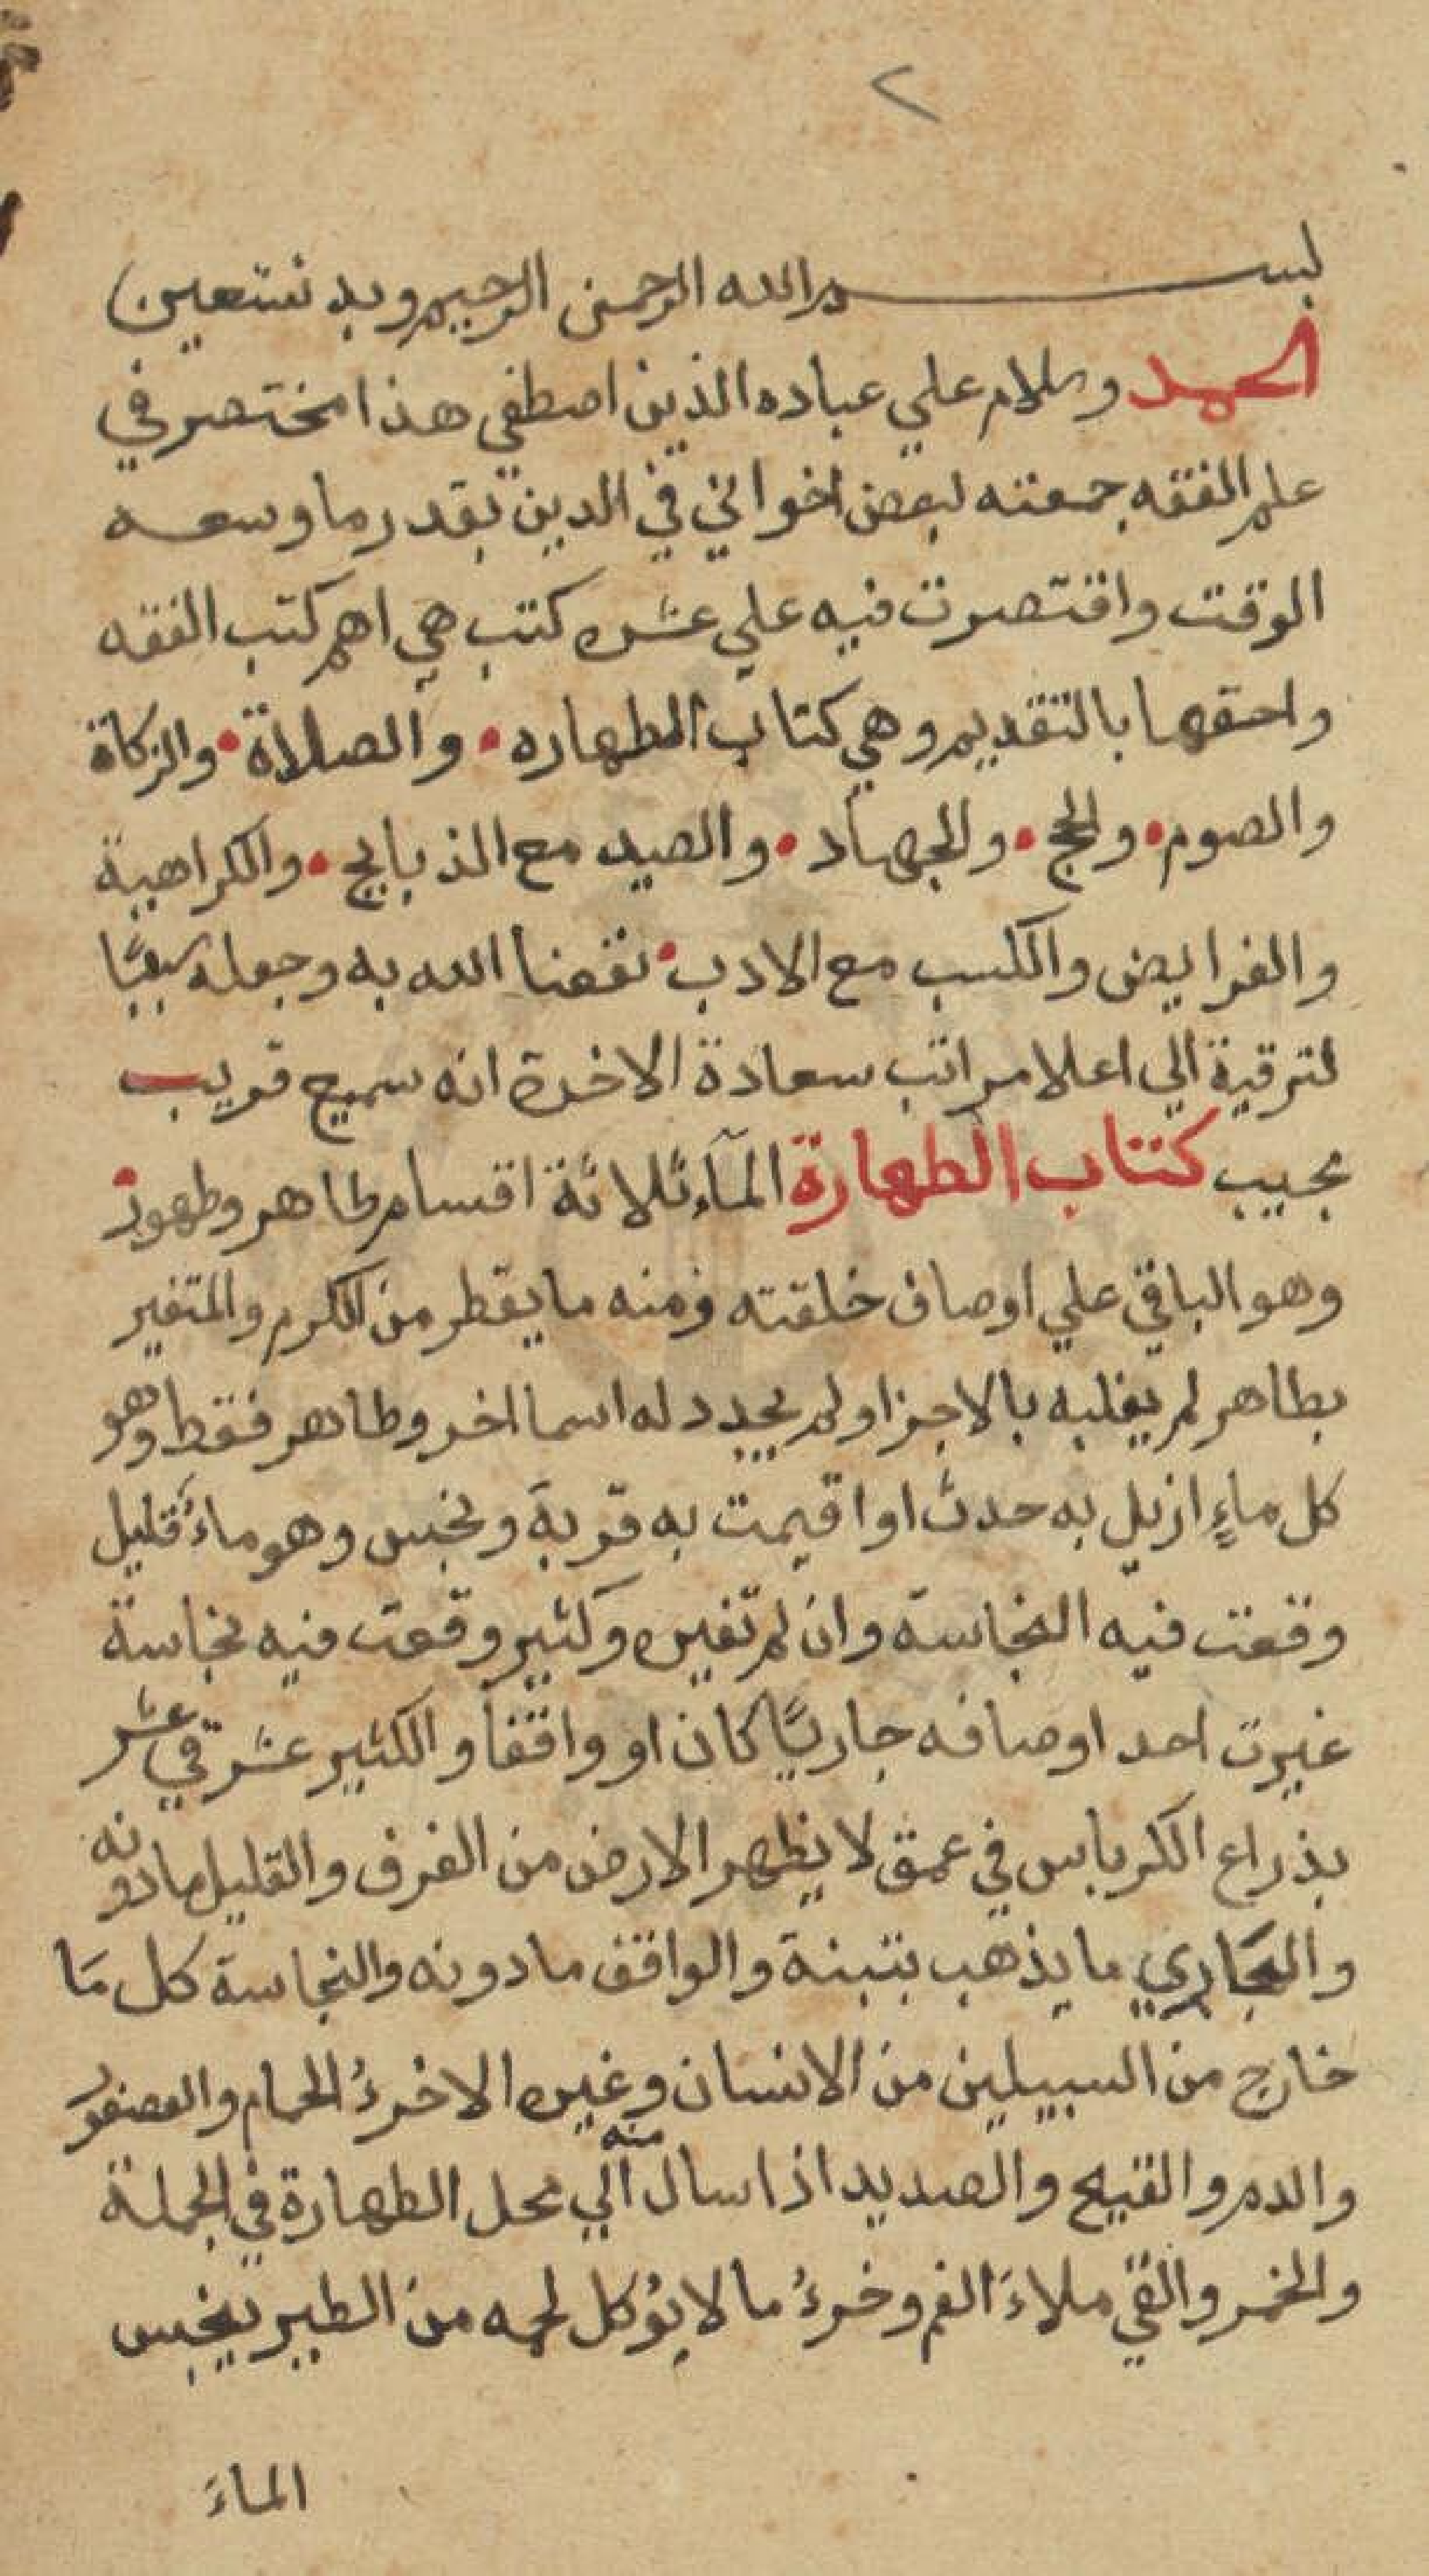 ٢
بسم الله الرحمن الرحيم وبه نستعين
الحمد وسلام علي عباده الذين اصطفي هذا مختصر في
علم الفقه جمعته لبعض اخواني في الدين بقدر ما وسعه
الوقت واقتصرت فيه علي عشره كتب هي اهم كتب الفقه
واحقها بالتقديم وهي كتاب الطهاره • والصلاة • والزكاة
والصوم • والحج • والجهاد • والصيد مع الذبايح • والكراهية
والفرايض والكسب مع الادب • نفعنا الله به وجعله سببًا
لترقية الي اعلا مراتب سعادة الاخرة انه سميع قريب
مجيب كتاب الطهارة المآء ثلاثة اقسام طاهر وطهور
وهو الباقي علي اوصاف خلقته ومنه ما يقطر من الكرم والمتغير
بطاهر لم يغلبه بالاجزا ولم يجدد له اسما اخر وطاهر فقط وهو
كل ماءٍ ازيل به حدث او اقيمت به قربة ونجس وهو ماءٌ قليل
وقعت فيه النجاسة وان لم تغيره وكثير وقعت فيه نجاسة
غيرت احد اوصافه جاريًا كان او واقفا والكثير عشر في عشر
بذراع الكرباس في عمق لا يظهر الارض من الغرف والقليل ما دونه
والجاري ما يذهب بتبنة والواقف ما دونه والنجاسة كل مَا
خارج من السبيلين من الانسان وغيره الا خرءُ الحمام والعصفور
والدم والقيح والصديد اذا سال منه الي محل الطهارة في الجملة
والخمر والقي ملاءَ الفم وخرءُ ما لا يؤكل لحمه من الطير ينجس
الماءَ